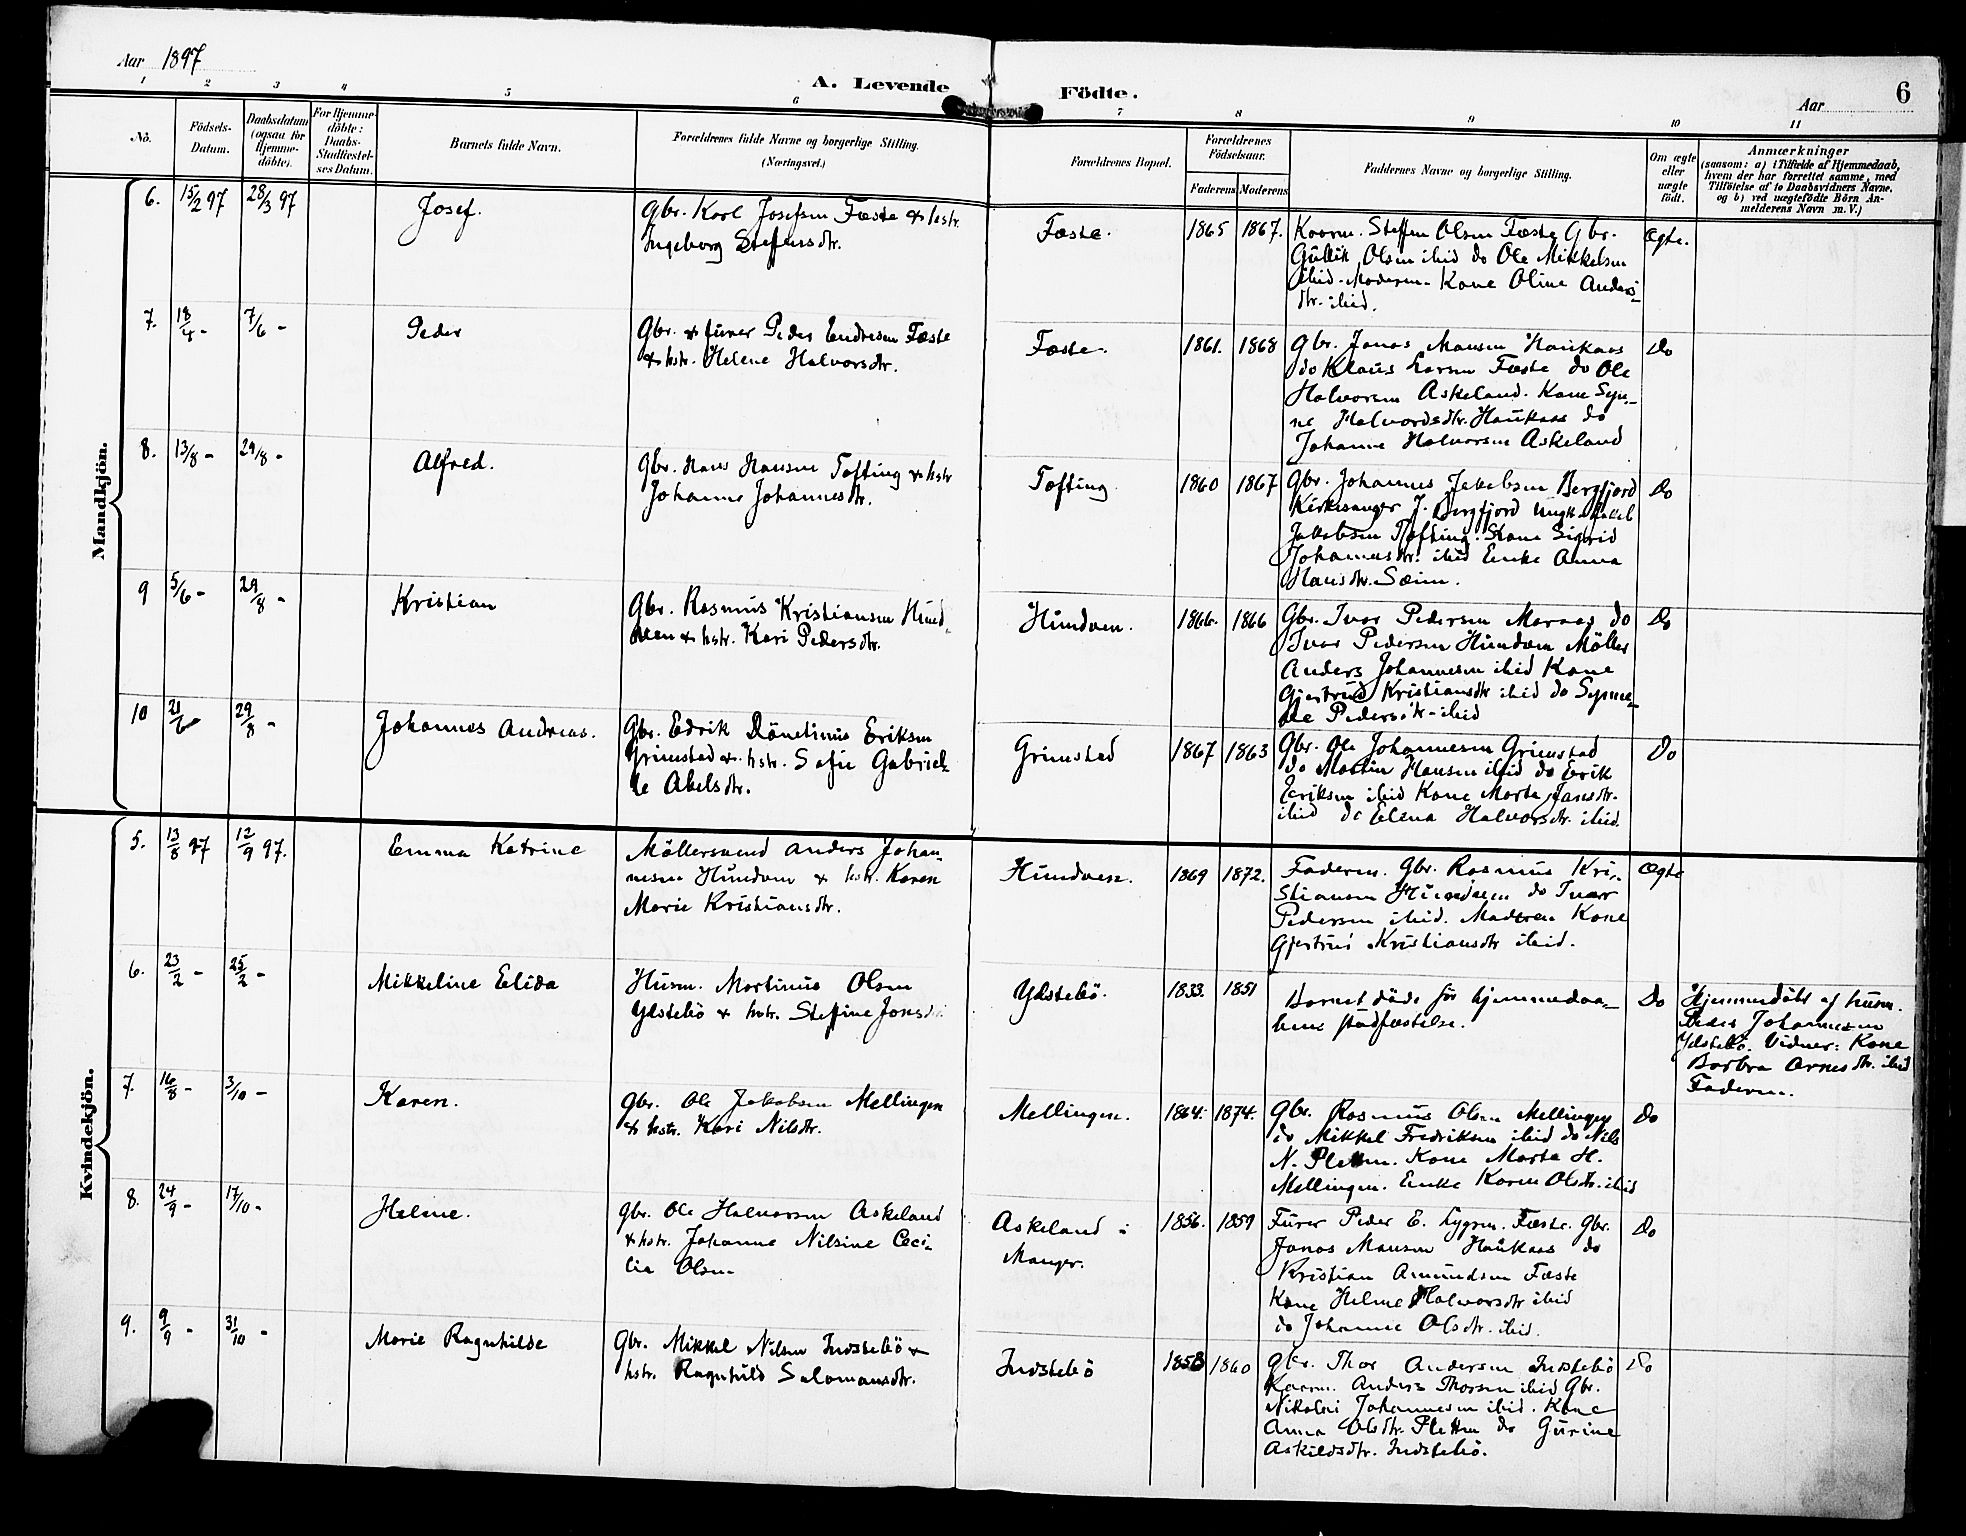 Aar 1897
A. Levende Födte.
Aar
6
1 2 3 4 5 6 7 8 9 10 11
No.
Födsels-
Datum.
Daabsdatum
(ogsaa for
Hjemme-
döbte).
For Hjemme-
döbte:
Daabs-
Stadfæstel-
ses Datum.
Barnets fulde Navn.
Forældrenes fulde Navne og borgerlige Stilling.
(Næringsvei.)
Forældrenes Bopæl.
Forældrenes
Födselsaar.
Faderens Moderens
Faddernes Navne og borgerlige Stilling.
Om ægte
eller
uægte
födt.
Anmærkninger
(saasom: a) i Tilfælde af Hjemmedaab,
hvem der har forrettet samme, med
Tilföielse af to Daabsvidners Navne.
og b) ved uægtefödte Börn An-
melderens Navn m. V.)
Mandkjön.
6. 15/2 97 28/3 97
Josef.
Gbr. Karl Josefsen Fæste & hstr.
Ingeborg Steffensdtr.
Fæste.
1865 1867.
Kaarm. Steffen Olsen Fæste Gbr.
Gullik Olsen ibid do Ole Mikkelsen
ibid. Moderen. Kone Oline Anders-
dtr. ibid.
Ægte.
7. 18/4 - 7/6 -
Peder
Gbr. & furer Peder Endresen Fæste
& hstr. Helene Halvorsdtr.
Fæste.
1861. 1868
Gbr. Jonas Monsen Haukaas
do Klaus Larsen Fæste do Ole
Halvorsen Askeland. Kone Syn-
ne Halvordsdtr. Haukaas do
Johanne Halvorsen Askeland
Do
8. 13/8 - 29/8 -
Alfred.
Gbr. Hans Hansen Tofting & hstr
Johanne Johannesdtr.
Tofting
1860 1867
Gbr. Johannes Jakobsen Bergfjord
Kirkesanger J. Bergfjord Ungk.
Jakobsen Tofting. Kone Sigrid
Johannesdtr. ibid Enke Anna
Hansdtr. Sæim.
Do
9 5/6 - 29/8 -
Kristian
Gbr. Rasmus Kristiansen Hund-
ven & hstr. Kari Pedersdtr.
Hundven.
1866. 1866
Gbr. Ivar Pedersen Maraas do
Ivar Pedersen Hundven Möller
Anders Johannesen ibid Kone
Gjertrud Kristiansdtr ibid do Synne-
ve Pedersdtr - ibid
Do
10 21/6 29/8 -
Johannes Andreas.
Gbr. Edvik Eriksen
Grimstad & hstr. Sofie Gabriel-
le Abelsdtr.
Grimstad
1867 1863
Gbr. Ole Johannesen Grimstad
do Martin Hansen ibid do Erik
Eriksen ibid Kone Marta Jansdtr.
ibid do Elena Halvorsdtr. ibid.
Do
Kvindekjön.
5. 13/8 97 12/9 97.
Emma Katrine
Möllersvend Anders Johan-
nesen Hundven & hstr. Karen
Marie Kristiansdtr.
Hundven.
1869 1872.
Faderen. Gbr. Rasmus Kri-
stiansen Hundven do Ivar
Pedersen ibid. Moderen Kone
Gjertrud Kristiansdtr ibid.
Ægte
6. 23/2 - 25/2 -
Mikkeline Elida
Husm. Martinus Olsen
Ydstebö & hstr. Steffine Jonsdtr
Ydstebö.
1833. 1851
Barnet döde för hjemmedaa-
bens stadfæstelse.
Do
Hjemmedöbt af husm.
Peder Johannesen
Ydstebö. Vidner: Kone
Barbra Arnesdtr. ibid
Faderen.
7. 16/8 - 3/10 -
Karen.
Gbr. Ole Jakobsen Mellingen
& hstr. Kari Nilsdtr.
Mellingen.
1864. 1874.
Gbr. Rasmus Olsen Mellingen
do Mikkel Fredriksen ibid do Nils
N. Pletten. Kone Marta H.
Mellingen. Enke Karen Olsdtr. ibid
Do
8. 24/9 - 17/10 -
Helene.
Gbr. Ole Halvorsen Askeland
& hstr. Johanne Nilsine Ceci-
lia Olsen.
Askeland i
Manger.
1856. 1859
Furer Peder E. Lygren. Fæste. Gbr.
Jonas Monsen Haukaas do
Kristian Amundsen Fæste
Kone Helene Halvorsdtr ibid
do Johanne Olsdtr. ibid.
Do
9. 9/9 - 31/10 -
Marie Ragnhilde
Gbr. Mikkel Nilsen Indstebö &
hstr. Ragnhild Salomonsdtr.
Indstebö
1858 1860
Gbr. Thor Andersen Indstebö
Kaarm. Anders Thorsen ibid Gbr.
Nikolai Johannesen ibid. Kone
Anna Olsdtr. Pletten do Gurine
Askildsdtr. Indstebö.
Do